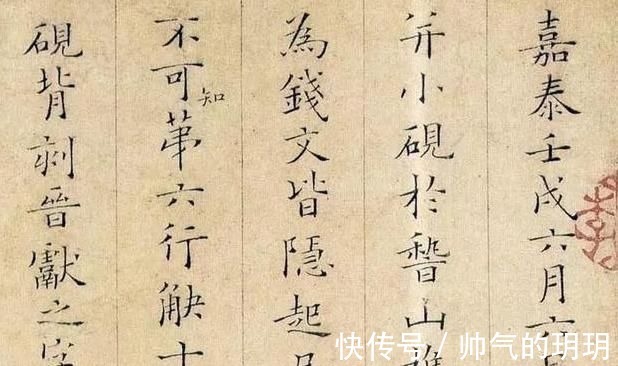 嘉泰壬戌六月六
并小硯於稽山
為錢文皆隱起
不可知苐六行觖十
硯背刻晉獻之字
快传号 / 帅气的玥玥